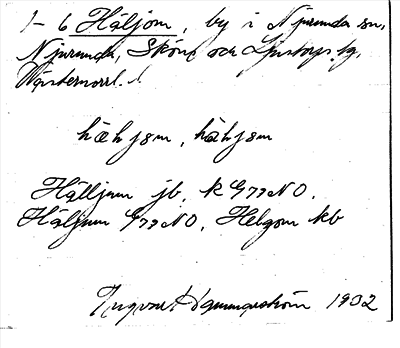 1–6 Häljom, by i Njurunda sn,
Njurunda, Sköns och Ljustorps tg,
Västernorrl. l
hæhjøm, hæhjøm
Hälljum jb, k G 77 NO.
Häljum G 77 NO, Helgom kb
Ingvar Hammarström 1932